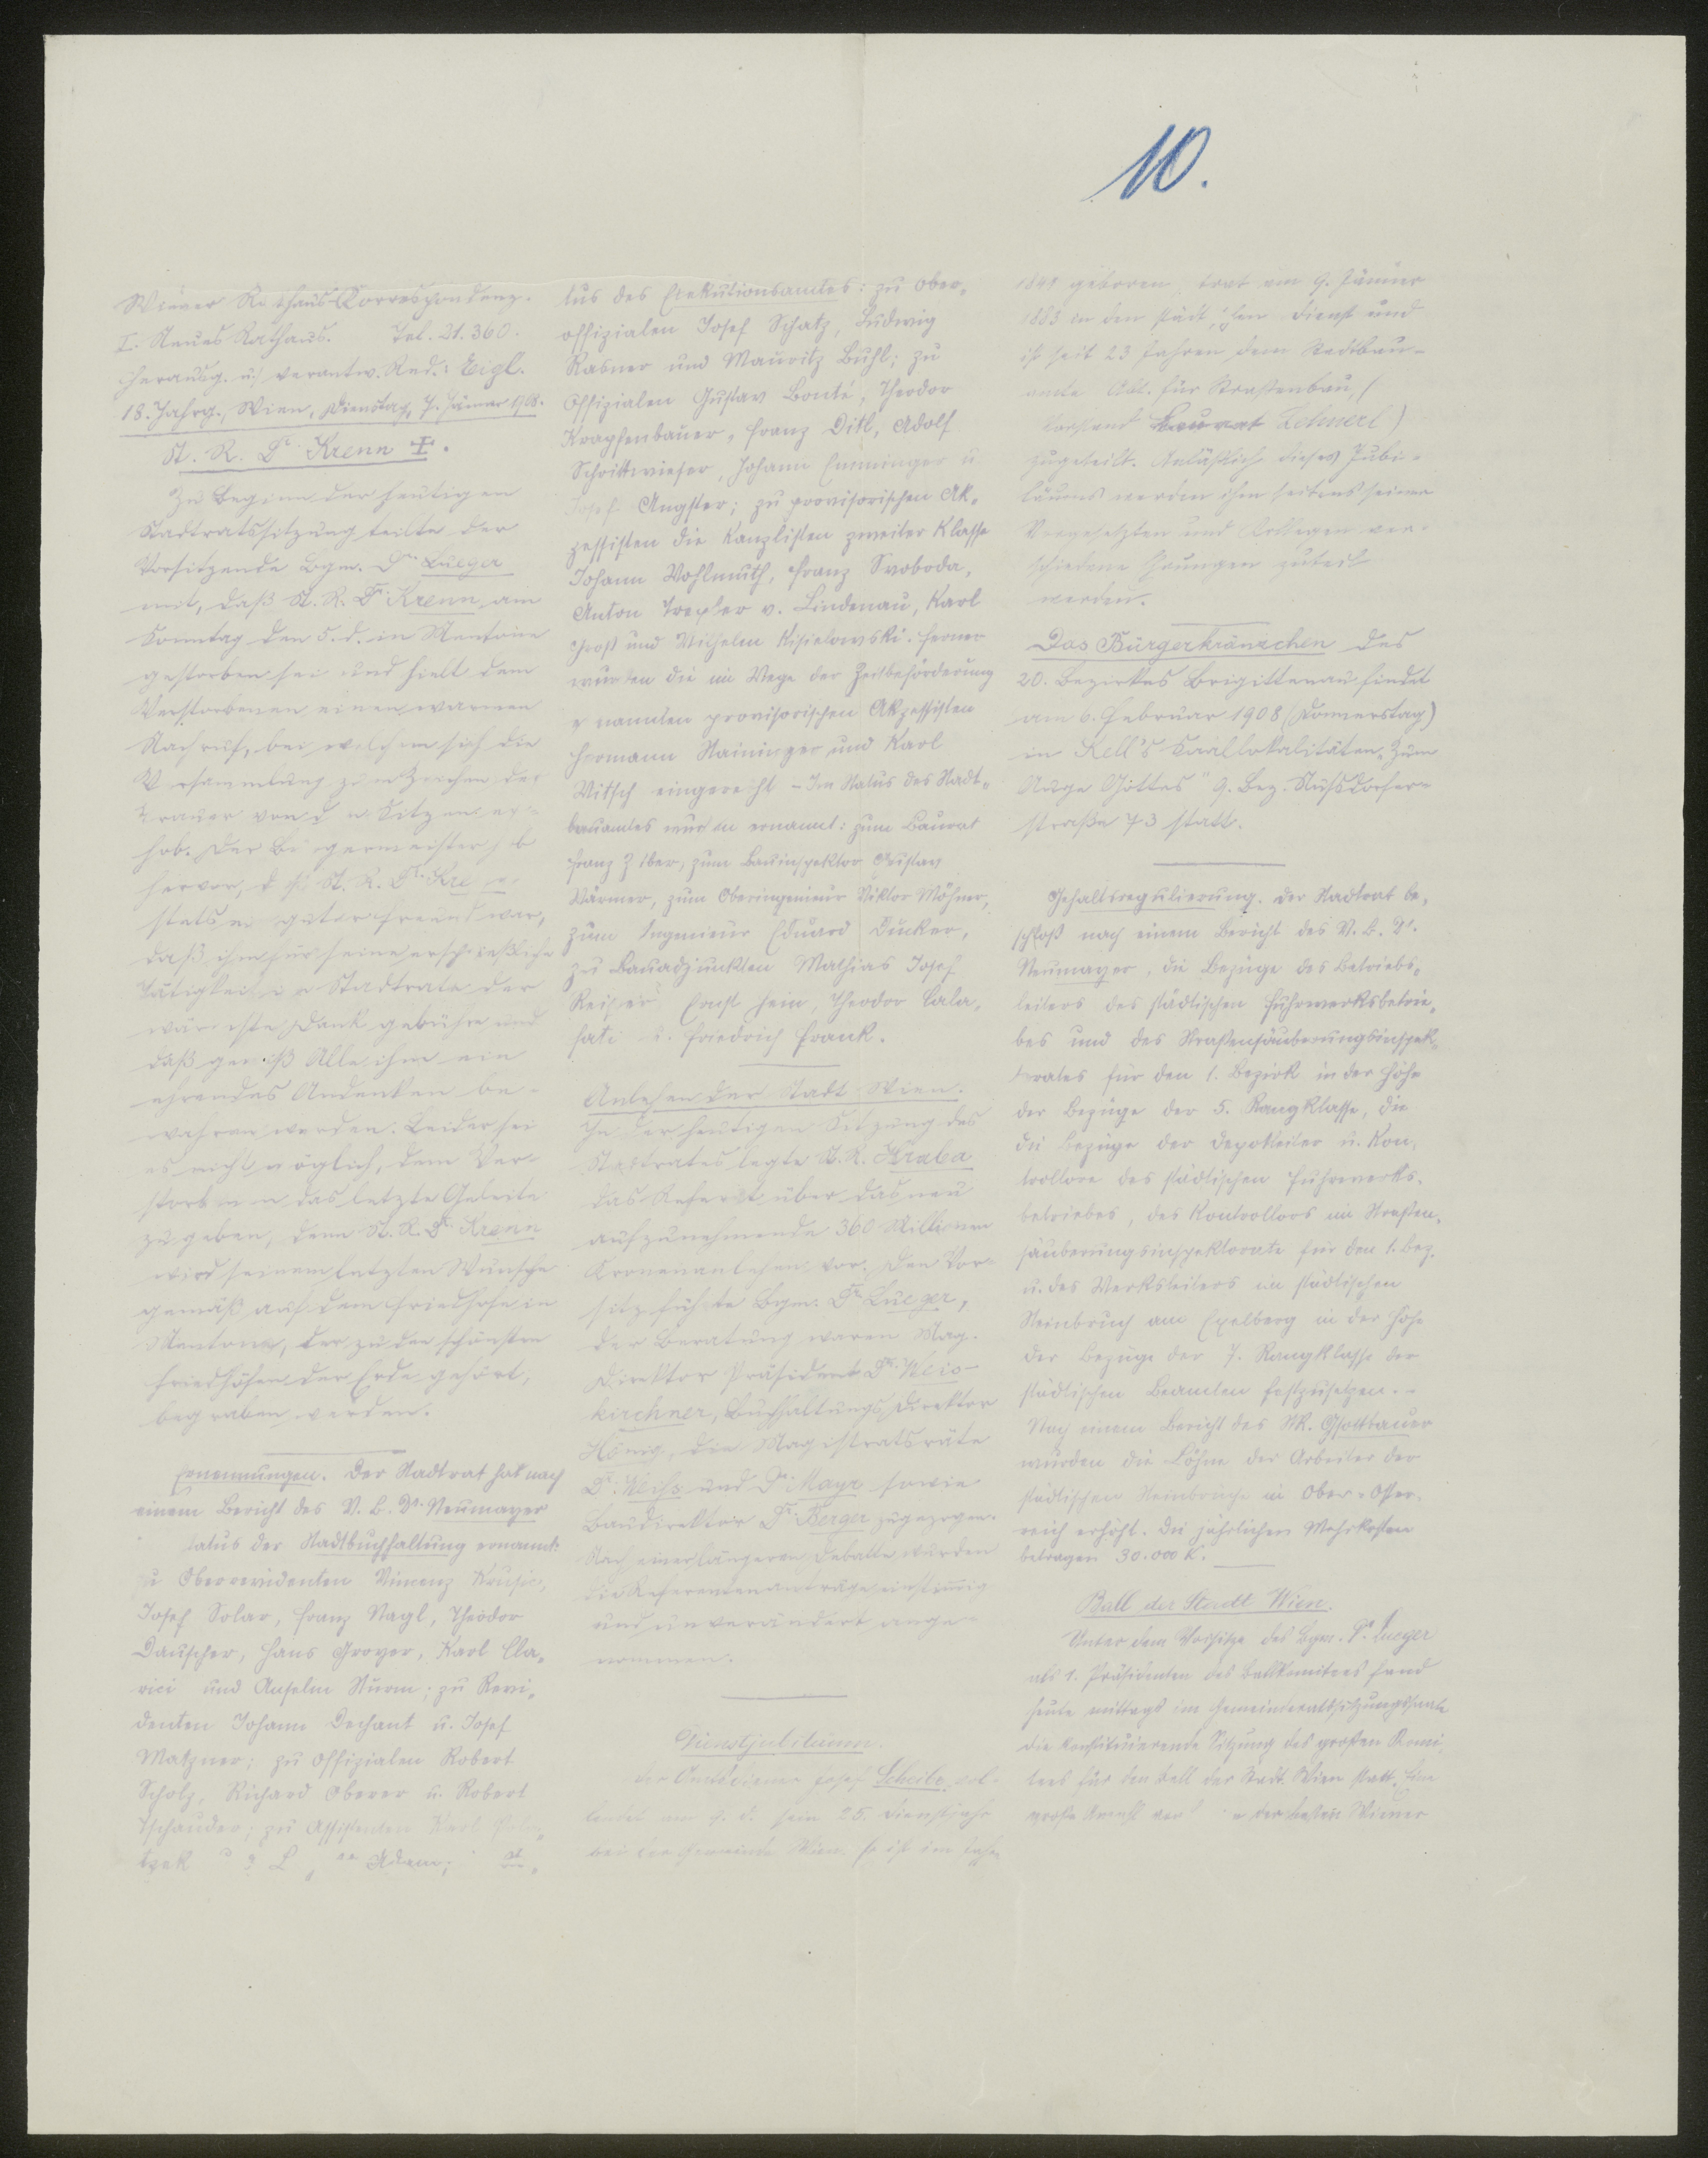 10.
Wiener Rathaus-Correspondenz.
I. Neues Rathaus. Tel. 21.360.
Herausg. u. verantw. Red.: Eigl.
18. Jahrg., Wien, Dienstag, 7. Jänner 1908.
St. R. Dr. Krenn ✝.
Zu Beginn der heutigen
Stadtratssitzung teilte der
Vorsitzende Bgm. Dr. Lueger
mit, daß St. R. Dr. Krenn am
Sonntag den 5. d. in Mentone
gestorben sei und hielt dem
Verstorbenen einen warmen
Nachruf, bei welchem sich die
Versammlung zum Zeichen der
Trauer von den Sitzen er-
hob. Der Bürgermeister hob
hervor, daß St. R. Dr. Krenn
stets ein guter Freund war,
daß ihm für seine ersprießliche
Tätigkeit im Stadtrate der
wärmste Dank gebühre und
daß gewiß Alle ihm ein
ehrendes Andenken be-
wahren werden. Leider sei
es nicht möglich, dem Ver-
storbenen das letzte Geleite
zu geben, denn St. R. Dr. Krenn
wird seinem letzten Wunsche
gemäß auf dem Friedhofe in
Mentone, der zu den schönsten
Friedhöfen der Erde gehört,
begraben werden.
Ernennungen. Der Stadtrat hat nach
einem Bericht des V. B. Dr. Neumayer
tatus der Stadtbuchhaltung ernannt:
zu Oberrevidenten Vincenz
Josef Solar, Franz Nagl, Theodor
Dauscher, Hans Groyer, Karl Cla-
rici und Anselm Sturm; zu Revi-
denten Johann Dechant u. Josef
Matzner; zu Offizialen Robert
Scholz, Richard Oberer u. Robert
Tschauder; zu Assistenten Karl
Adam;
tus des Exekutionsamtes: zu Ober-
offizialen Josef Schatz, Ludwig
Rasner und Mauritz Buhl; zu
Offizialen Gustav Bonté, Theodor
Krapfenbauer, Franz Ditl, Adolf
Schrittwieser, Johann Emminger u.
Josef Angster; zu provisorischen Ak-
zessisten die Kanzlisten zweiter Klasse
Johann Wohlmuth, Franz Svoboda,
Anton Trexler v. Lindenau, Karl
Groß und Wilhelm Kisielowski. Ferner
wurden die im Wege der Zeitbeförderung
ernannten provisorischen Akzessisten
Hermann Naininger und Karl
Witsch eingereiht – Im Status des Stadt-
bauamtes wurden ernannt: zum Baurat
Franz, zum Bauinspektor Gustav
Wärmer, zum Oberingenieur Viktor Möhner,
zum Ingenieur Eduard Ducker,
zu Bauadjunkten Mathias Josef
Reiser, Ernst Hein, Theodor Cala-
fati u. Friedrich Frank.
Anlehen der Stadt Wien.
In der heutigen Sitzung des
Stadtrates legte St. R. Hraba
das Referat über das neu
aufzunehmende 360 Millionen
Kronenanlehen vor. Den Vor-
sitz führte Bgm. Dr. Lueger,
der Beratung waren Mag.
Direktor Präsident Dr. Weis-
kirchner, Buchhaltungs-Direktor
König, die Magistratsräte
Dr. Weiß und Dr. Mayr sowie
Baudirektor Dr. Berger zugezogen.
Nach einer längeren Debatte wurden
die Referentenanträge einstimmig
und unverändert ange-
nommen.
Dienstjubiläum.
Der Amtsdiener Josef Scheibe vol-
lendet am 9. d. sein 25. Dienstjahr
bei der Gemeinde Wien. Er ist im Jahre
1841 geboren, trat am 9. Jänner
1883 in den städtischen Dienst und
ist seit 23 Jahren dem Stadtbau-
amte Abt. für Straßenbau, (
Vorstand Baurat Zohnerl)
zugeteilt. Anläßlich dieses Jubi-
läums werden ihm seitens seiner
Vorgesetzten und Kollegen ver-
schiedene Ehrungen zuteil
werden.
Das Bürgerkränzchen des
20. Bezirkes Brigittenau findet
am 6. Februar 1908 (Donnerstag)
in Kell's Saallokalitäten „Zum
Auge Gottes" 9. Bez. Nußdorfer-
straße 73 statt.
Gehaltsregulierung. Der Stadtrat be-
schloß nach einem Bericht des V. B. Dr.
Neumayer, die Bezüge des Betriebs-
leiters des städtischen Fuhrwerksbetrie-
bes und des Straßensäuberungsinspek-
torates für den 1. Bezirk in der Höhe
der Bezüge der 5. Rangklasse, die
die Bezüge der Depotleiter u. Kon-
trollore des städtischen Fuhrwerks-
betriebes, des Kontrollors im Straßen-
säuberungsinspektorate für den 1. Bez.
u. des Werksleiters im städtischen
Steinbruch am Exelberg in der Höhe
der Bezüge der 7. Rangklasse der
städtischen Beamten festzusetzen. –
Nach einem Bericht des StR. Gsottbauer
wurden die Löhne der Arbeiter der
städtischen Steinbrüche in Ober-Öster-
reich erhöht. Die jährlichen Mehrkosten
betragen 30.000 K.
Ball der Stadt Wien.
Unter dem Vorsitze des Bgm. Dr. Lueger
als 1. Präsidenten des Ballkomitees fand
heute mittags im Gemeinderatssitzungssaale
die konstituierende Sitzung des großen Komi-
tees für den Ball der Stadt Wien statt. Eine
große Anzahl der besten Wiener